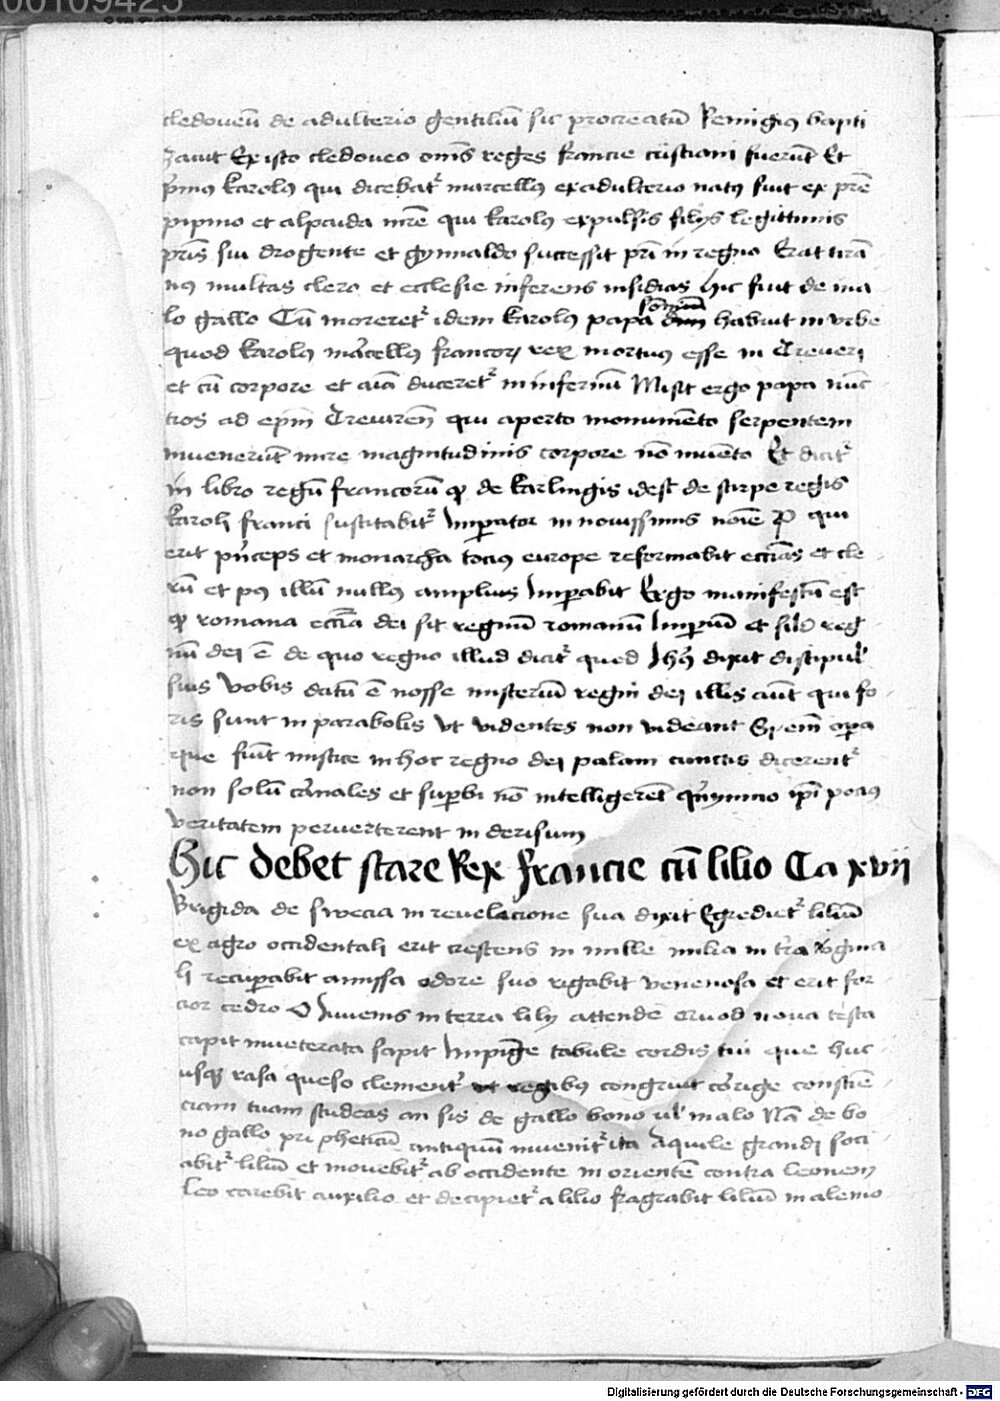 00109425
cledoueū de adulterio gentiliū sic procreatū Remigiꝯ bapti
zauit Ex isto cledoueo om̄s reges francie cristiani fuerūt Et
pͥmꝯ karolꝯ qui dicebatᷣ marcellꝯ ex adulterio natꝯ fuit ex pr̄e
pipino et alpaida mr̄e qui karolꝯ expulsis filijs legittimis
pr̄is sui drogente et gymaldo successit pr̄i in regno Erat tirā
nꝯ multas clero et ecclesie inferens insidias Hic fuit de ma
lo gallo Cū moreretᷣ idem karolꝯ papa sōpniū habuit in vrbe
quod karolꝯ marcellꝯ francorꝝ rex mortuꝯ esse in Treueri
et cū corpore et aīa duceretᷣ in infernū Misit ergo papa nūc
cios ad ep̄m Treuiren̄ qui aperto monumēto serpentem
inuenerūt mire magnitudinis corpore nō inuēto Et dicitᷣ
in libro regū francorū ꝙ de karlingis idest de stirpe regis
karoli franci suscitabitᷣ Imꝑator in nouissimis noīe P qui
erit pͥnceps et monarcha tociꝯ europe reformabit ecc̄ias et cle-
rū et pꝯ illū nullꝯ amplius Imꝑabit Ergo manifestū est
ꝙ romana ecc̄ia dei sit regnū romanū Imꝑiū et sil'r reg-
nū dei ē de quo regno illud dicitᷣ quod Ihꝯ dixit discipul'
suis Vobis datū ē nosse misteriū regni dei illis aūt qui fo-
ris sunt in parabolis Vt videntes non videant Si em̄ oꝑa
que fiūt mistice in hoc regno dei palam cunctis dicerentᷣ
non solū carnales et suꝑbi nō intelligerēt qͥnymmo ip̄i pociꝯ
veritatem peruerterent in derisum
Hic debet stare Rex francie cū lilio Ca xvij
Brigida de swecia in reuelacione sua dixit Egredietᷣ liliū
ex agro occidentali erit crescens in mille milia in tr̄a virgina
li recuꝑabit amissa odore suo rigabit venenosa et erit for-
cior cedro O Iuuenis in terra lilij attende quod noua testa
capit inueterata sapit Impīge tabule cordis tui que huc-
usqꝫ rasa queso clementᷣ vt regibꝯ congruit corige consciē-
ciam tuam studeas an sis de gallo bono ul' malo Nā de bo
no gallo pheticū antiquū inuenitᷣ ita Aquile grandi soci-
abitᷣ liliū et mouebitᷣ ab occidente in orientē contra leonem
Leo carebit auxilio et decipietᷣ a lilio fragrabit liliū in alemo
Digitalisierung gefördert durch die Deutsche Forschungsgemeinschaft - DFG